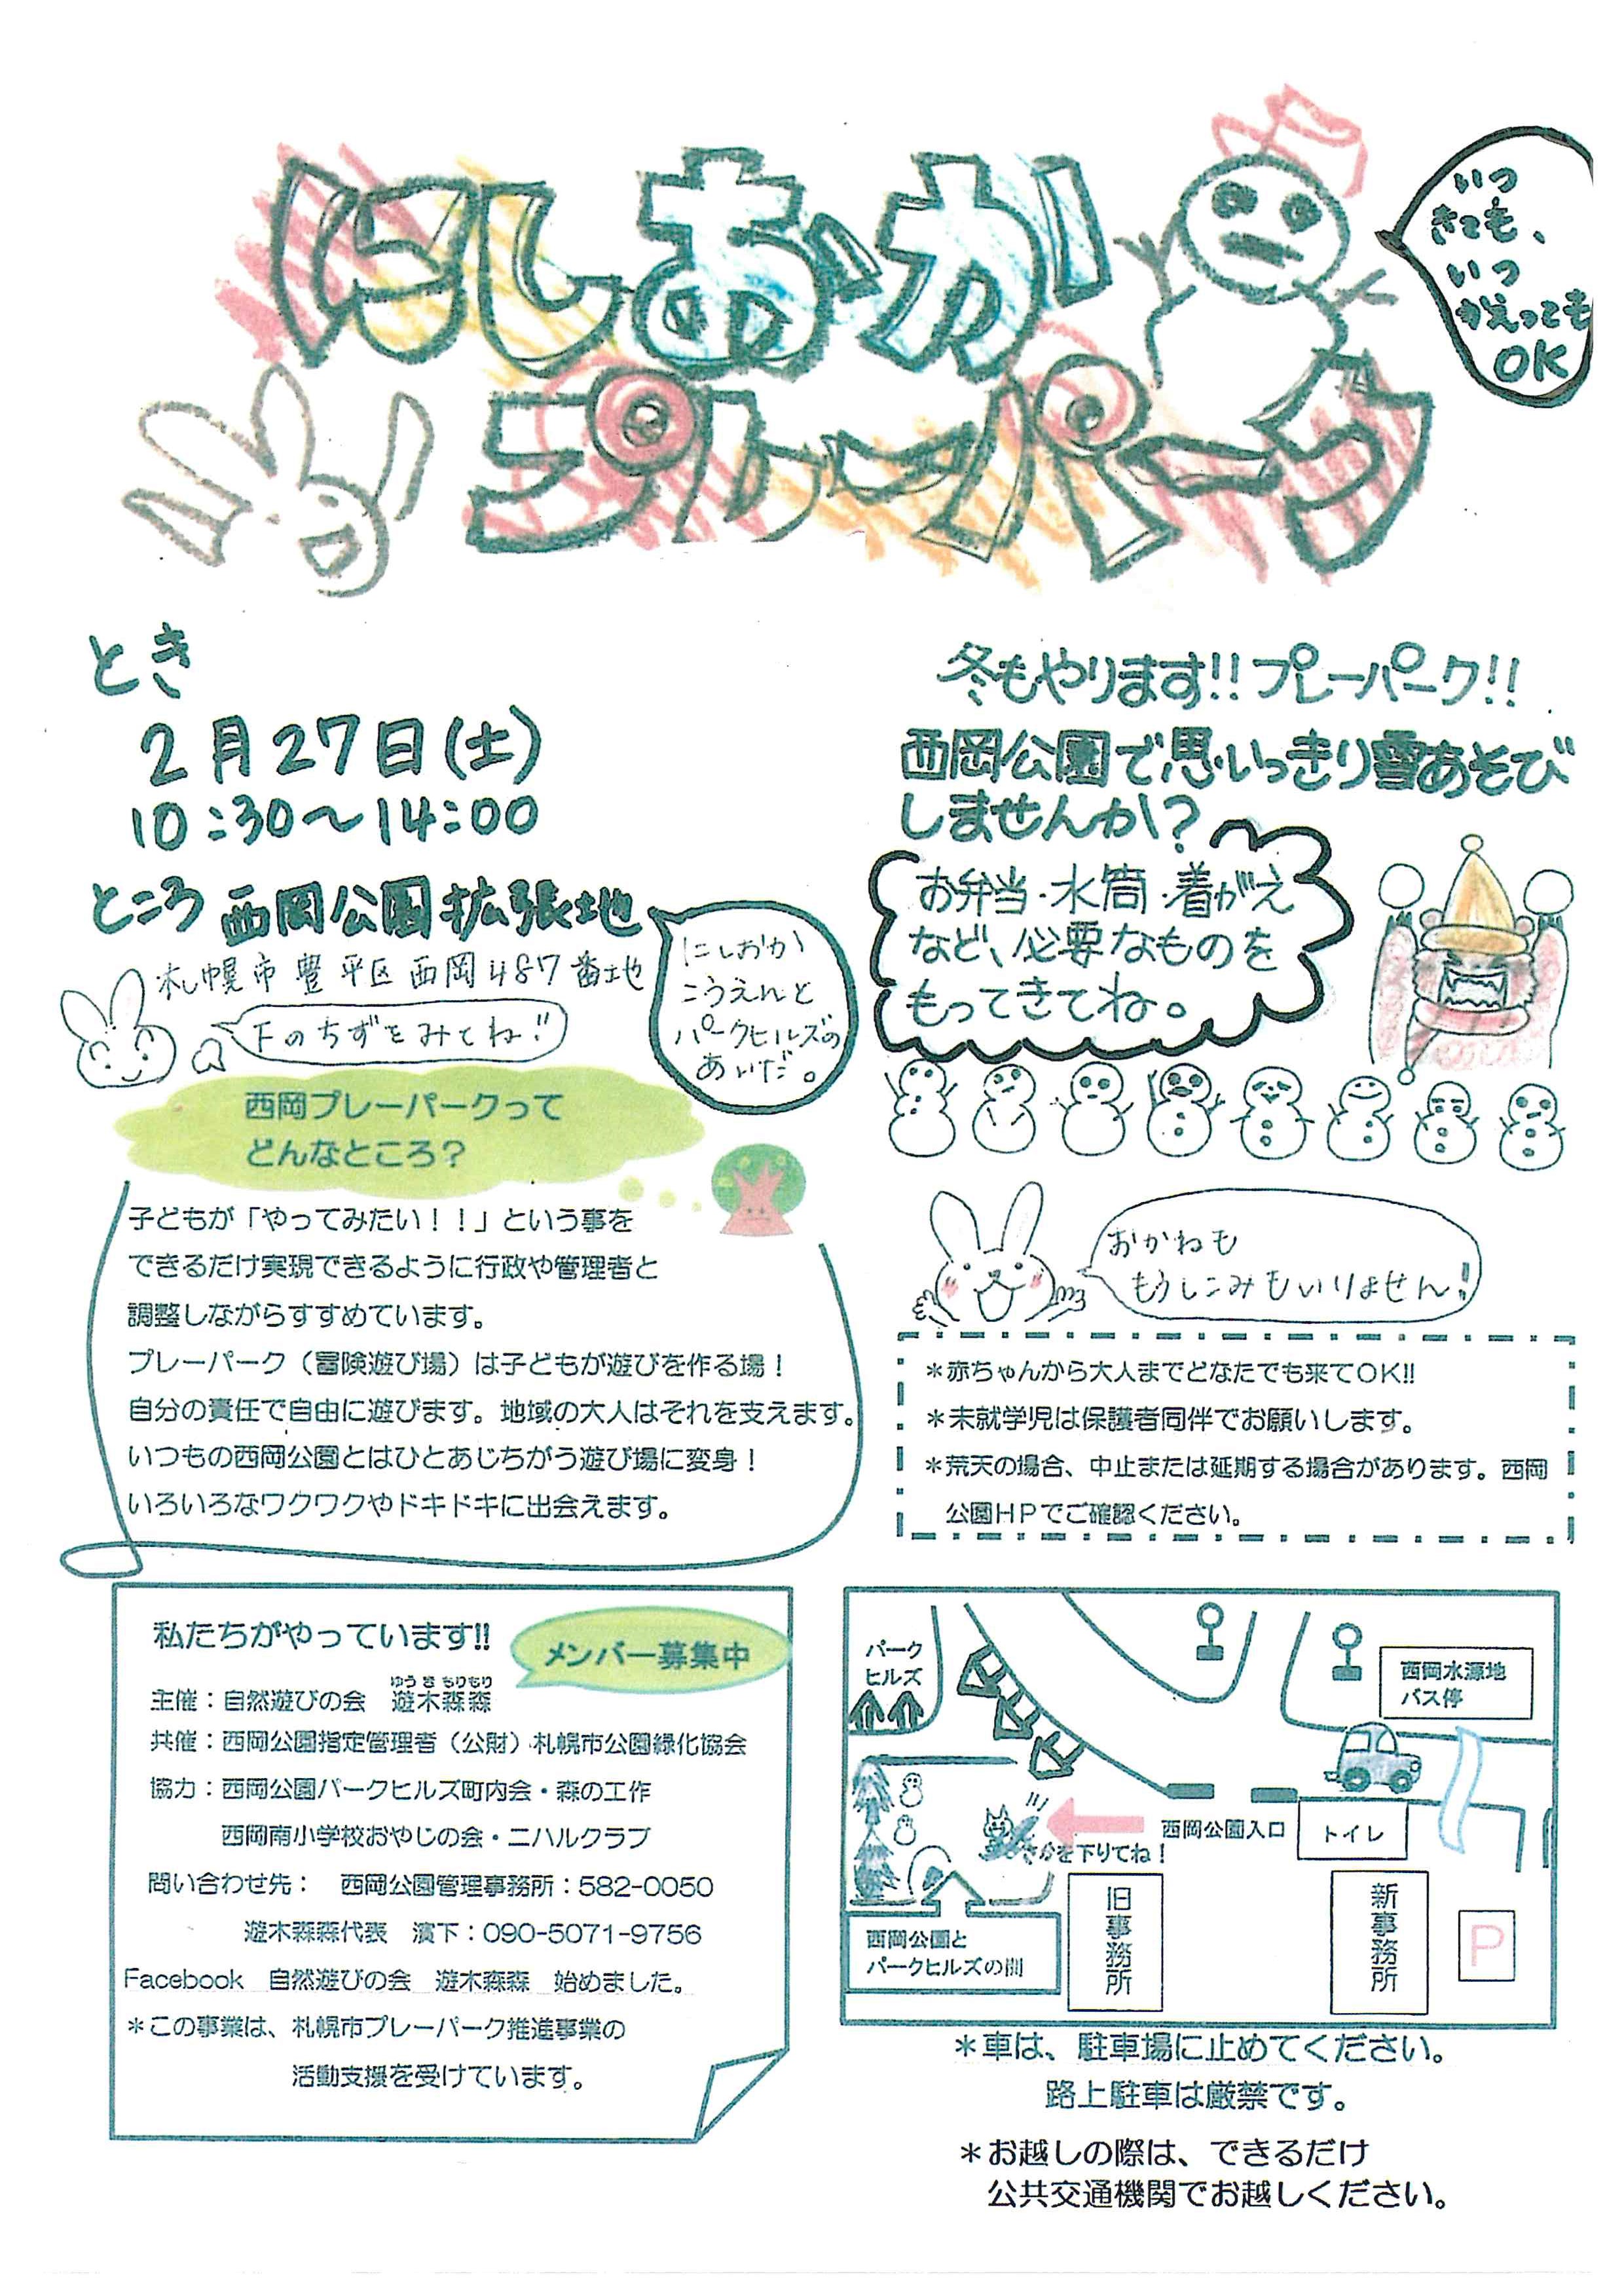 にしおか
プレーパーク
いつ
きても、
いつ
かえっても
OK
とき
2月27日(土)
10:30～14:00
ところ 西岡公園拡張地
札幌市豊平区西岡487番地
下のちずをみてね!!
にしおか
こうえんと
パークヒルズの
あいだ。
冬もやります!!プレーパーク!!
西岡公園で思いっきり雪あそび
しませんか?
お弁当・水筒・着がえ
など、必要なものを
もってきてね。
西岡プレーパークって
どんなところ？
子どもが「やってみたい！！」という事を
できるだけ実現できるように行政や管理者と
調整しながらすすめています。
プレーパーク（冒険遊び場）は子どもが遊びを作る場！
自分の責任で自由に遊びます。地域の大人はそれを支えます。
いつもの西岡公園とはひとあじちがう遊び場に変身！
いろいろなワクワクやドキドキに出会えます。
おかねも
もうしこみもいりません!
＊赤ちゃんから大人までどなたでも来てOK!!
＊未就学児は保護者同伴でお願いします。
＊荒天の場合、中止または延期する場合があります。西岡
公園HPでご確認ください。
私たちがやっています!!
メンバー募集中
ゆう き もりもり
主催：自然遊びの会　遊木森森
共催：西岡公園指定管理者（公財）札幌市公園緑化協会
協力：西岡公園パークヒルズ町内会・森の工作
西岡南小学校おやじの会・ニハルクラブ
問い合わせ先：　西岡公園管理事務所：582-0050
遊木森森代表　濱下：090-5071-9756
Facebook　自然遊びの会　遊木森森　始めました。
＊この事業は、札幌市プレーパーク推進事業の
活動支援を受けています。
パーク
ヒルズ
西岡水源地
バス停
西岡公園入口
トイレ
さかを下りてね！
旧事務所
新事務所
P
西岡公園と
パークヒルズの間
＊車は、駐車場に止めてください。
路上駐車は厳禁です。
＊お越しの際は、できるだけ
公共交通機関でお越しください。